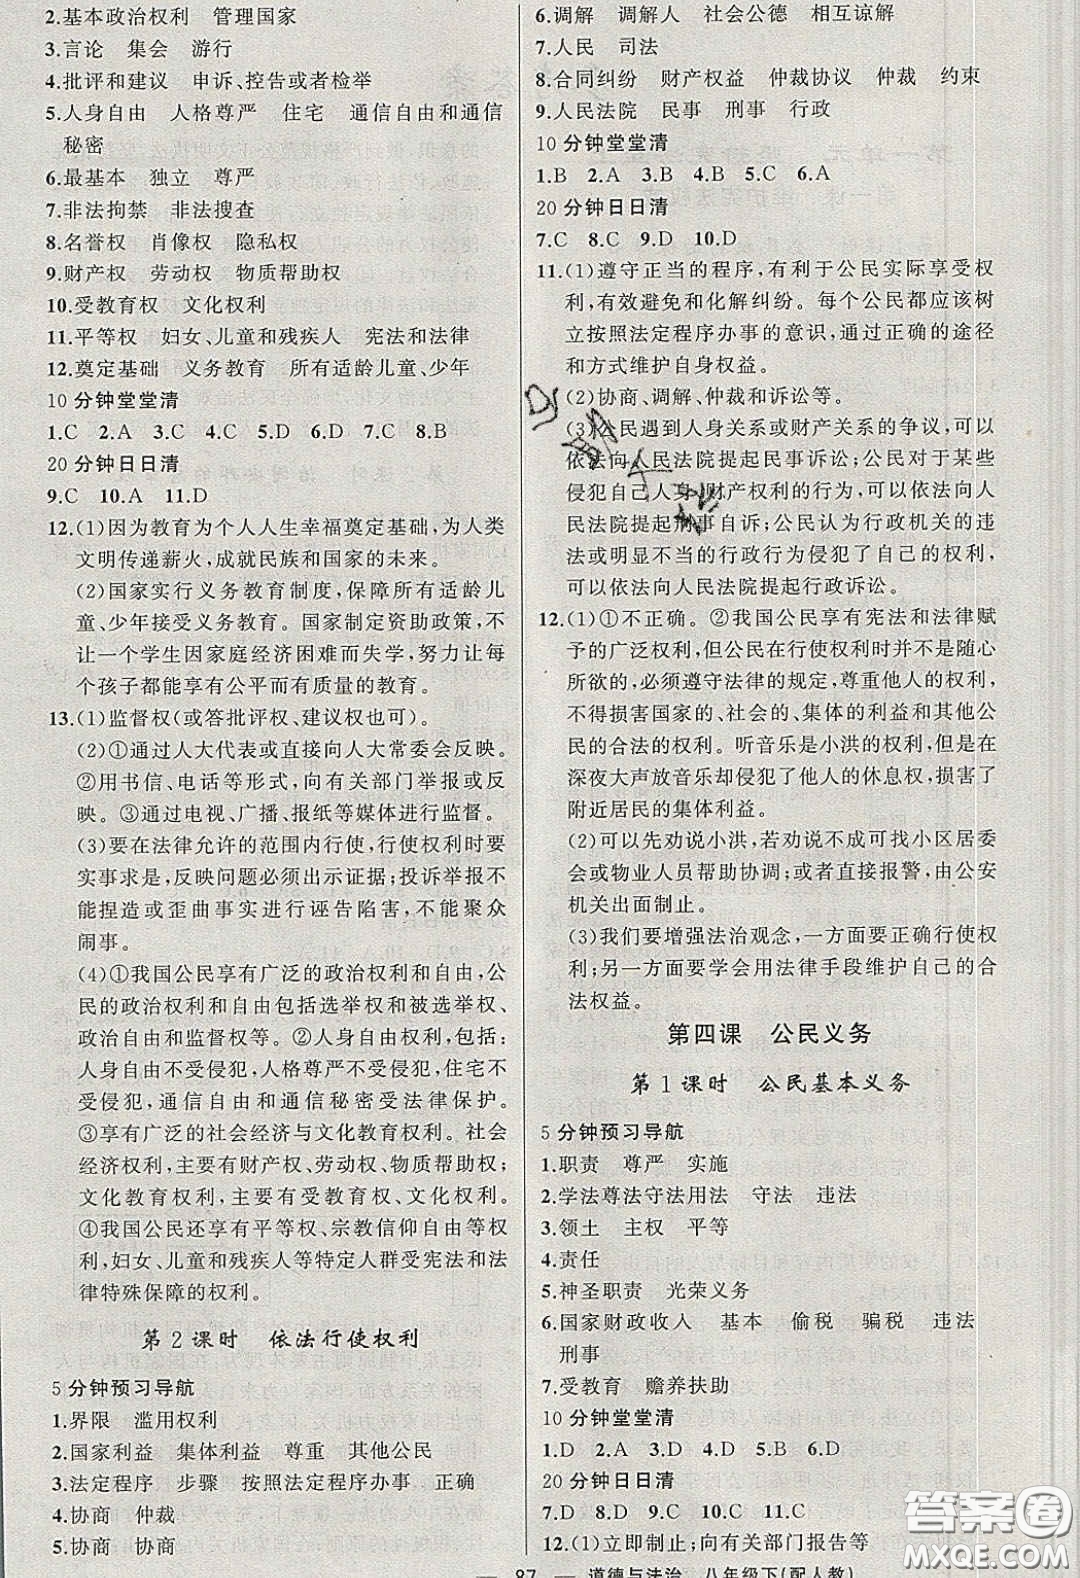 2.基本政治权利　管理国家
3.言论　集会　游行
4.批评和建议　申诉、控告或者检举
5.人身自由　人格尊严　住宅　通信自由和通信
秘密
6.最基本　独立　尊严
7.非法拘禁　非法搜查
8.名誉权　肖像权　隐私权
9.财产权　劳动权　物质帮助权
10.受教育权　文化权利
11.平等权　妇女、儿童和残疾人　宪法和法律
12.奠定基础　义务教育　所有适龄儿童、少年
10 分钟堂堂清
1.C　2.A　3.C　4.C　5.D　6.D　7.C　8.B
20 分钟日日清
9.C　10.A　11.D
12.(1)因为教育为个人人生幸福奠定基础,为人类
文明传递薪火,成就民族和国家的未来。
(2)国家实行义务教育制度,保障所有适龄儿
童、少年接受义务教育。国家制定资助政策,不
让一个学生因家庭经济困难而失学,努力让每
个孩子都能享有公平而有质量的教育。
13.(1)监督权(或答批评权、建议权也可)。
(2)①通过人大代表或直接向人大常委会反映。
②用书信、电话等形式,向有关部门举报或反
映。③通过电视、广播、报纸等媒体进行监督。
(3)要在法律允许的范围内行使,行使权利时要
实事求是,反映问题必须出示证据;投诉举报不
能捏造或歪曲事实进行诬告陷害,不能聚众
闹事。
(4)①我国公民享有广泛的政治权利和自由,公
民的政治权利和自由包括选举权和被选举权、
政治自由和监督权等。②人身自由权利,包括:
人身自由不受侵犯,人格尊严不受侵犯,住宅不
受侵犯,通信自由和通信秘密受法律保护。
③享有广泛的社会经济与文化教育权利。社会
经济权利,主要有财产权、劳动权、物质帮助权;
文化教育权利,主要有受教育权、文化权利。
④我国公民还享有平等权、宗教信仰自由等权
利,妇女、儿童和残疾人等特定人群受宪法和法
律特殊保障的权利。
第 2 课时　依法行使权利
5 分钟预习导航
1.界限　滥用权利
2.国家利益　集体利益　尊重　其他公民
3.法定程序　步骤　按照法定程序办事　正确
4.协商　仲裁
5.协商　协商
6.调解　调解人　社会公德　相互谅解
7.人民　司法
8.合同纠纷　财产权益　仲裁协议　仲裁　约束
9.人民法院　民事　刑事　行政
10 分钟堂堂清
1.B　2.A　3.D　4.B　5.C　6.A
20 分钟日日清
7.C　8.C　9.D　10.D
11.(1)遵守正当的程序,有利于公民实际享受权
利,有效避免和化解纠纷。每个公民都应该树
立按照法定程序办事的意识,通过正确的途径
和方式维护自身权益。
(2)协商、调解、仲裁和诉讼等。
(3)公民遇到人身关系或财产关系的争议,可以
依法向人民法院提起民事诉讼;公民对于某些
侵犯自己人身、财产权利的行为,可以依法向人
民法院提起刑事自诉;公民认为行政机关的违
法或明显不当的行政行为侵犯了自己的权利,
可以依法向人民法院提起行政诉讼。
12.(1)①不正确。②我国公民享有宪法和法律赋
予的广泛权利,但公民在行使权利时不是随心
所欲的,必须遵守法律的规定,尊重他人的权利,
不得损害国家的、社会的、集体的利益和其他公
民的合法的权利。听音乐是小洪的权利,但是在
深夜大声放音乐却侵犯了他人的休息权,损害了
附近居民的集体利益。
(2)可以先劝说小洪,若劝说不成可找小区居委
会或物业人员帮助协调;或者直接报警,由公安
机关出面制止。
(3)我们要增强法治观念,一方面要正确行使权
利;另一方面要学会用法律手段维护自己的合
法权益。
第四课　公民义务
第 1 课时　公民基本义务
5 分钟预习导航
1.职责　尊严　实施
2.学法尊法守法用法　守法　违法
3.领土　主权　平等
4.责任
5.神圣职责　光荣义务
6.国家财政收入　基本　偷税　骗税　违法
刑事
7.受教育　赡养扶助
10 分钟堂堂清
1.D　2.A　3.D　4.A　5.B　6.D
20 分钟日日清
7.D　8.D　9.C　10.C　11.C
12.(1)立即制止;向有关部门报告等
— 87 —　道德与法治　八年级下(配人教)
答案圈
MXQE.COM